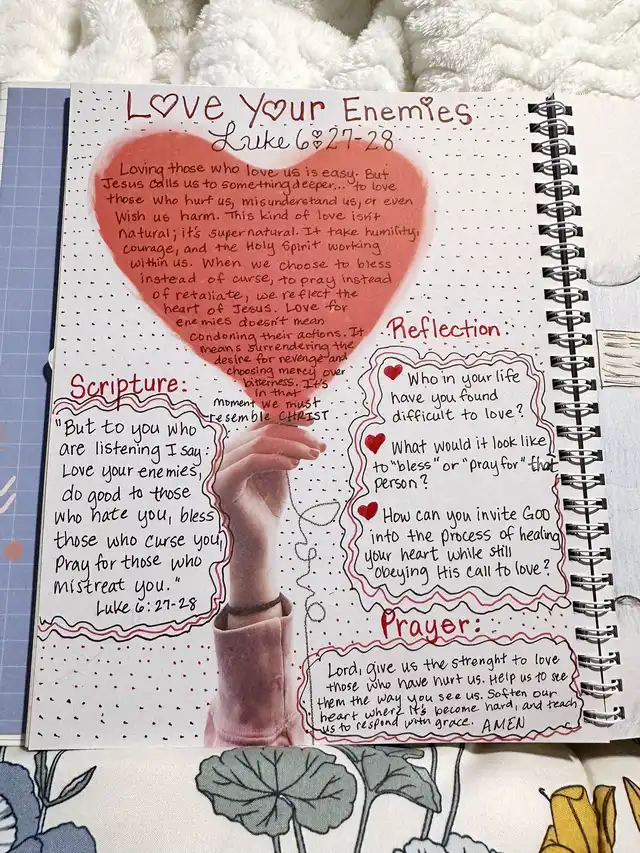 Love Your Enemies
Luke 6:27-28
Loving those who love us is easy. But
Jesus calls us to something deeper... to love
those who hurt us, misunderstand us, or even
wish us harm. This kind of love isn't
natural; it's supernatural. It take humility,
courage, and the Holy Spirit working
within us. When we choose to bless
instead of curse, to pray instead
of retaliate, we reflect the
heart of Jesus. Love for
enemies doesn't mean
condoning their actions. It
means surrendering the
desire for revenge and
choosing mercy over
bitterness. It's
in that
moment we must
resemble CHRIST
Scripture:
"But to you who
are listening I say:
Love your enemies,
do good to those
who hate you, bless
those who curse you,
Pray for those who
mistreat you."
Luke 6:27-28
Reflection:
Who in your life
have you found
difficult to love?
What would it look like
to "bless" or "pray for" that
person?
How can you invite God
into the process of healing
your heart while still
obeying His call to love?
Prayer:
Lord, give us the strenght to love
those who have hurt us. Help us to see
them the way you see us. Soften our
heart where it's become hard, and teach
us to respond with grace. AMEN